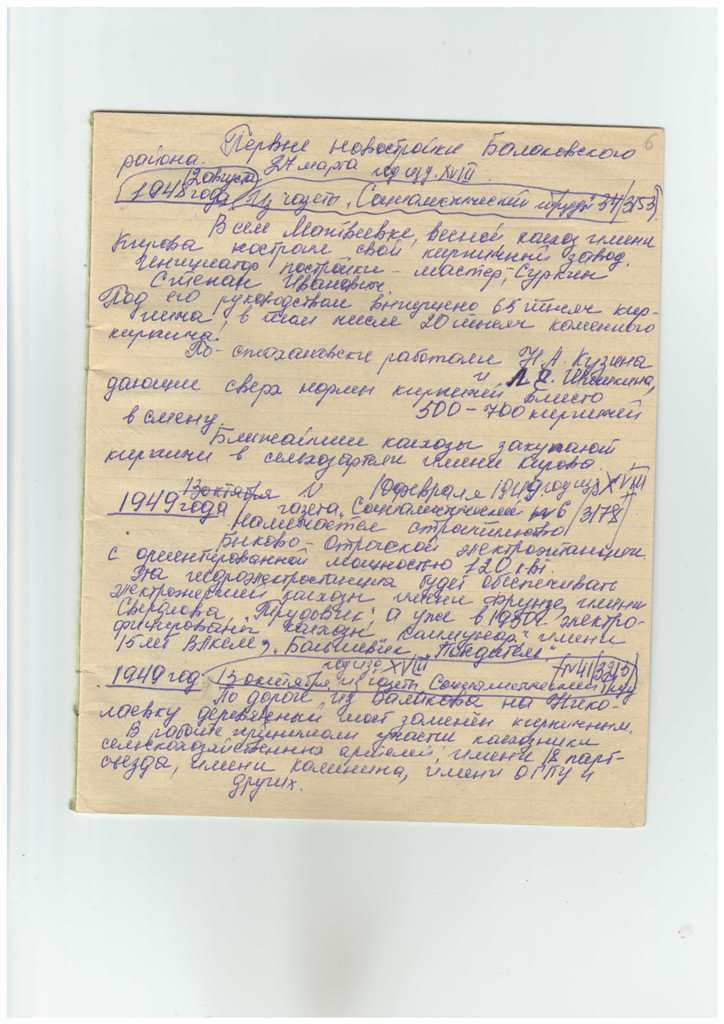 6
Первые новостройки Балаковского
района. 27 марта год изд. XVIII
12 августа
1948 года Из газеты „Социалистический труд" 34/3153/
В селе Матвеевке, весной колхоз имени
Кирова построил свой кирпичный завод.
Инициатор постройки – мастер, Суркин
Степан Иванович.
Под его руководством выпущено 65 тысяч кир-
пича, в том числе 20 тысяч каменного
кирпича.
По-стахановски работали Н.А. Кузина
и
дающие сверх нормы кирпичей вместо
500–700 кирпичей
в смену
Ближайшие колхозы закупают
кирпичи в сельхозартели имени Кирова.
13 октября 10 февраля 1949, год изд. XVIII
1949 года газета „Социалистический № 6 /3178/
Намечается строительство
Быково-Отрогской электростанции
с ориентированной мощностью 120 квт
Эта гидроэлектростанция будет обеспечивать
электроэнергией колхозы имени Фрунзе, имени
Свердлова, „Трудовик". А уже в 1950г. электро-
фицированы колхозы „Коммунар", имени
15 лет ВЛКСМ, „Большевик", „Победитель"
год изд. XVIII
1949 год. 13 октября, из газеты Социалистический труд /№41/3213/
По дороге из Балакова на Нико-
лаевку деревянный мост заменён кирпичным.
В работе принимали участки колхозники
сельскохозяйственных артелей; имени 18 парт-
съезда, имени Калинина, имени ОГПУ и
других.